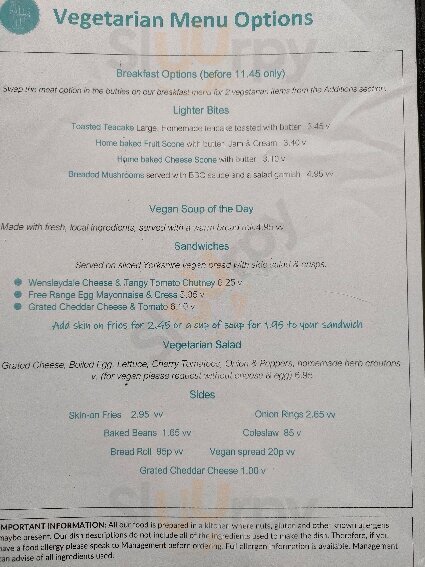 Vegetarian Menu Options
Breakfast Options (before 11.45 only)
Swap the meat option in the butties on our breakfast menu for 2 vegetarian items from the Additions section.
Lighter Bites
Toasted Teacake Large, Homemade teacake toasted with butter 3.45 v
Home baked Fruit Scone with butter, Jam & Cream 3.40 v
Home baked Cheese Scone with butter 3.10 v
Breaded Mushrooms served with BBQ sauce and a salad garnish 4.95 vv
Vegan Soup of the Day
Made with fresh, local ingredients, served with a warm bread roll 4.95 vv
Sandwiches
Served on sliced Yorkshire vegan bread with side salad & crisps.
Wensleydale Cheese & Tangy Tomato Chutney 6.25 v
Free Range Egg Mayonnaise & Cress v
Grated Cheddar Cheese & Tomato 6.10 v
Add skin on fries for 2.45 or a cup of soup for 1.95 to your sandwich
Vegetarian Salad
Grated Cheese, Boiled Egg, Lettuce, Cherry Tomatoes, Onion & Peppers, homemade herb croutons
v. (for vegan please request without cheese & egg) 6.95
Sides
Skin-on Fries 2.95 vv Onion Rings 2.65 vv
Baked Beans 1.65 vv Coleslaw 85 v
Bread Roll 95p vv Vegan spread 20p vv
Grated Cheddar Cheese 1.00 v
IMPORTANT INFORMATION: All our food is prepared in a kitchen where nuts, gluten and other known allergens
maybe present. Our dish descriptions do not include all of the ingredients used to make the dish. Therefore, if you
have a food allergy please speak to Management before ordering. Full allergen information is available. Management
can advise of all ingredients used.
Sluurpy
Sluurpy